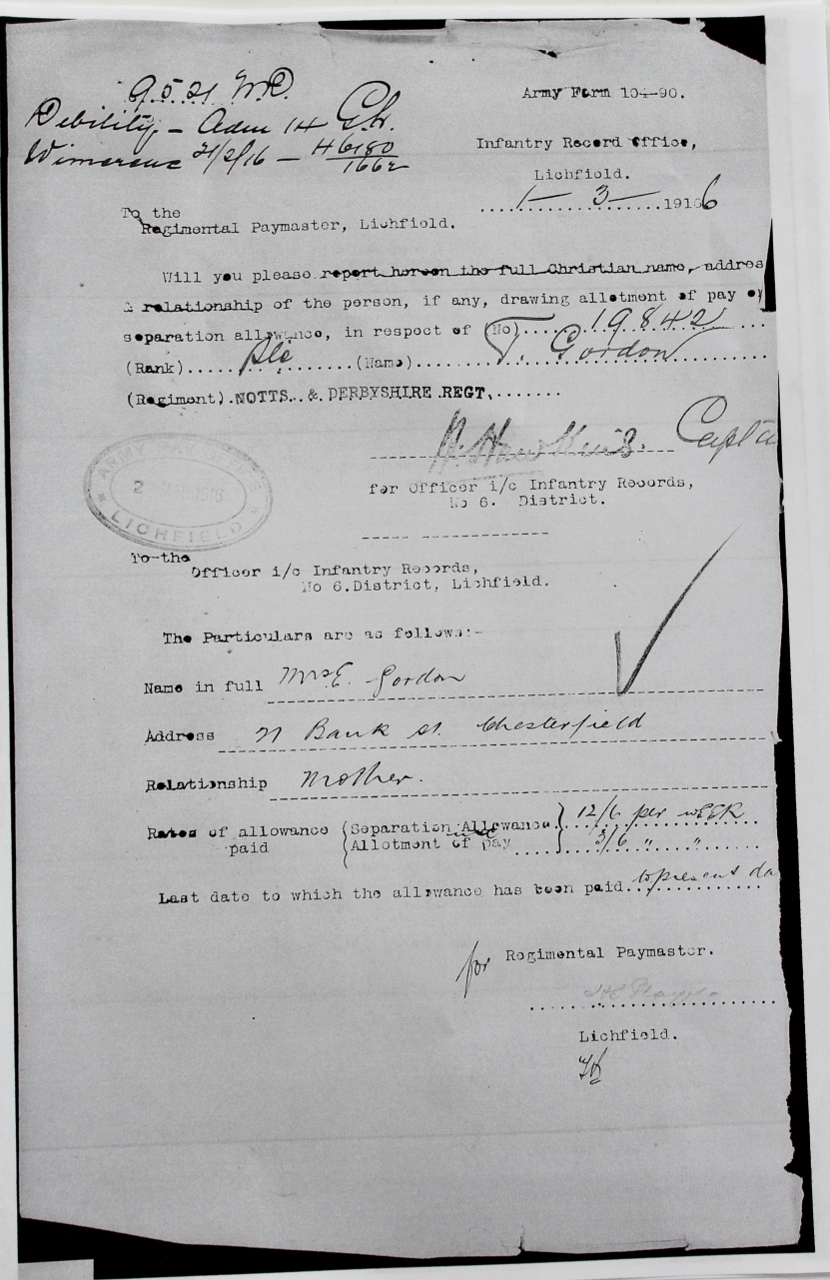 9521 MD.
Debility - Adm 14 G.h.
Wimereux 21/2/16 - H6180
1662
Army Form 104-90.
Infantry Record Office,
Lichfield.
1 - 3 - 1916
To the
Regimental Paymaster, Lichfield.
Will you please report hereon the full Christian name, addres
& relationship of the person, if any, drawing allotment of pay or
separation allowance, in respect of (No)....19842
(Rank).....Pte.....(Name)....T. Gordon
(Regiment).NOTTS. & DERBYSHIRE REGT.......
Hawkins. Capta
for Officer i/c Infantry Records,
No 6. District.
ARMY
2 1916
LICHFIELD
To the
Officer i/c Infantry Records,
No 6.District, Lichfield.
The Particulars are as follows:-
Name in full Mrs E. Gordon
Address 21 Bank st. Chesterfield
Relationship Mother.
Rates of allowance (Separation Allowance.) 12/6 per wEEK
paid (Allotment of pay ....) 3/6 " "
Last date to which the allowance has been paid..to present da
for Regimental Paymaster.
Lichfield.